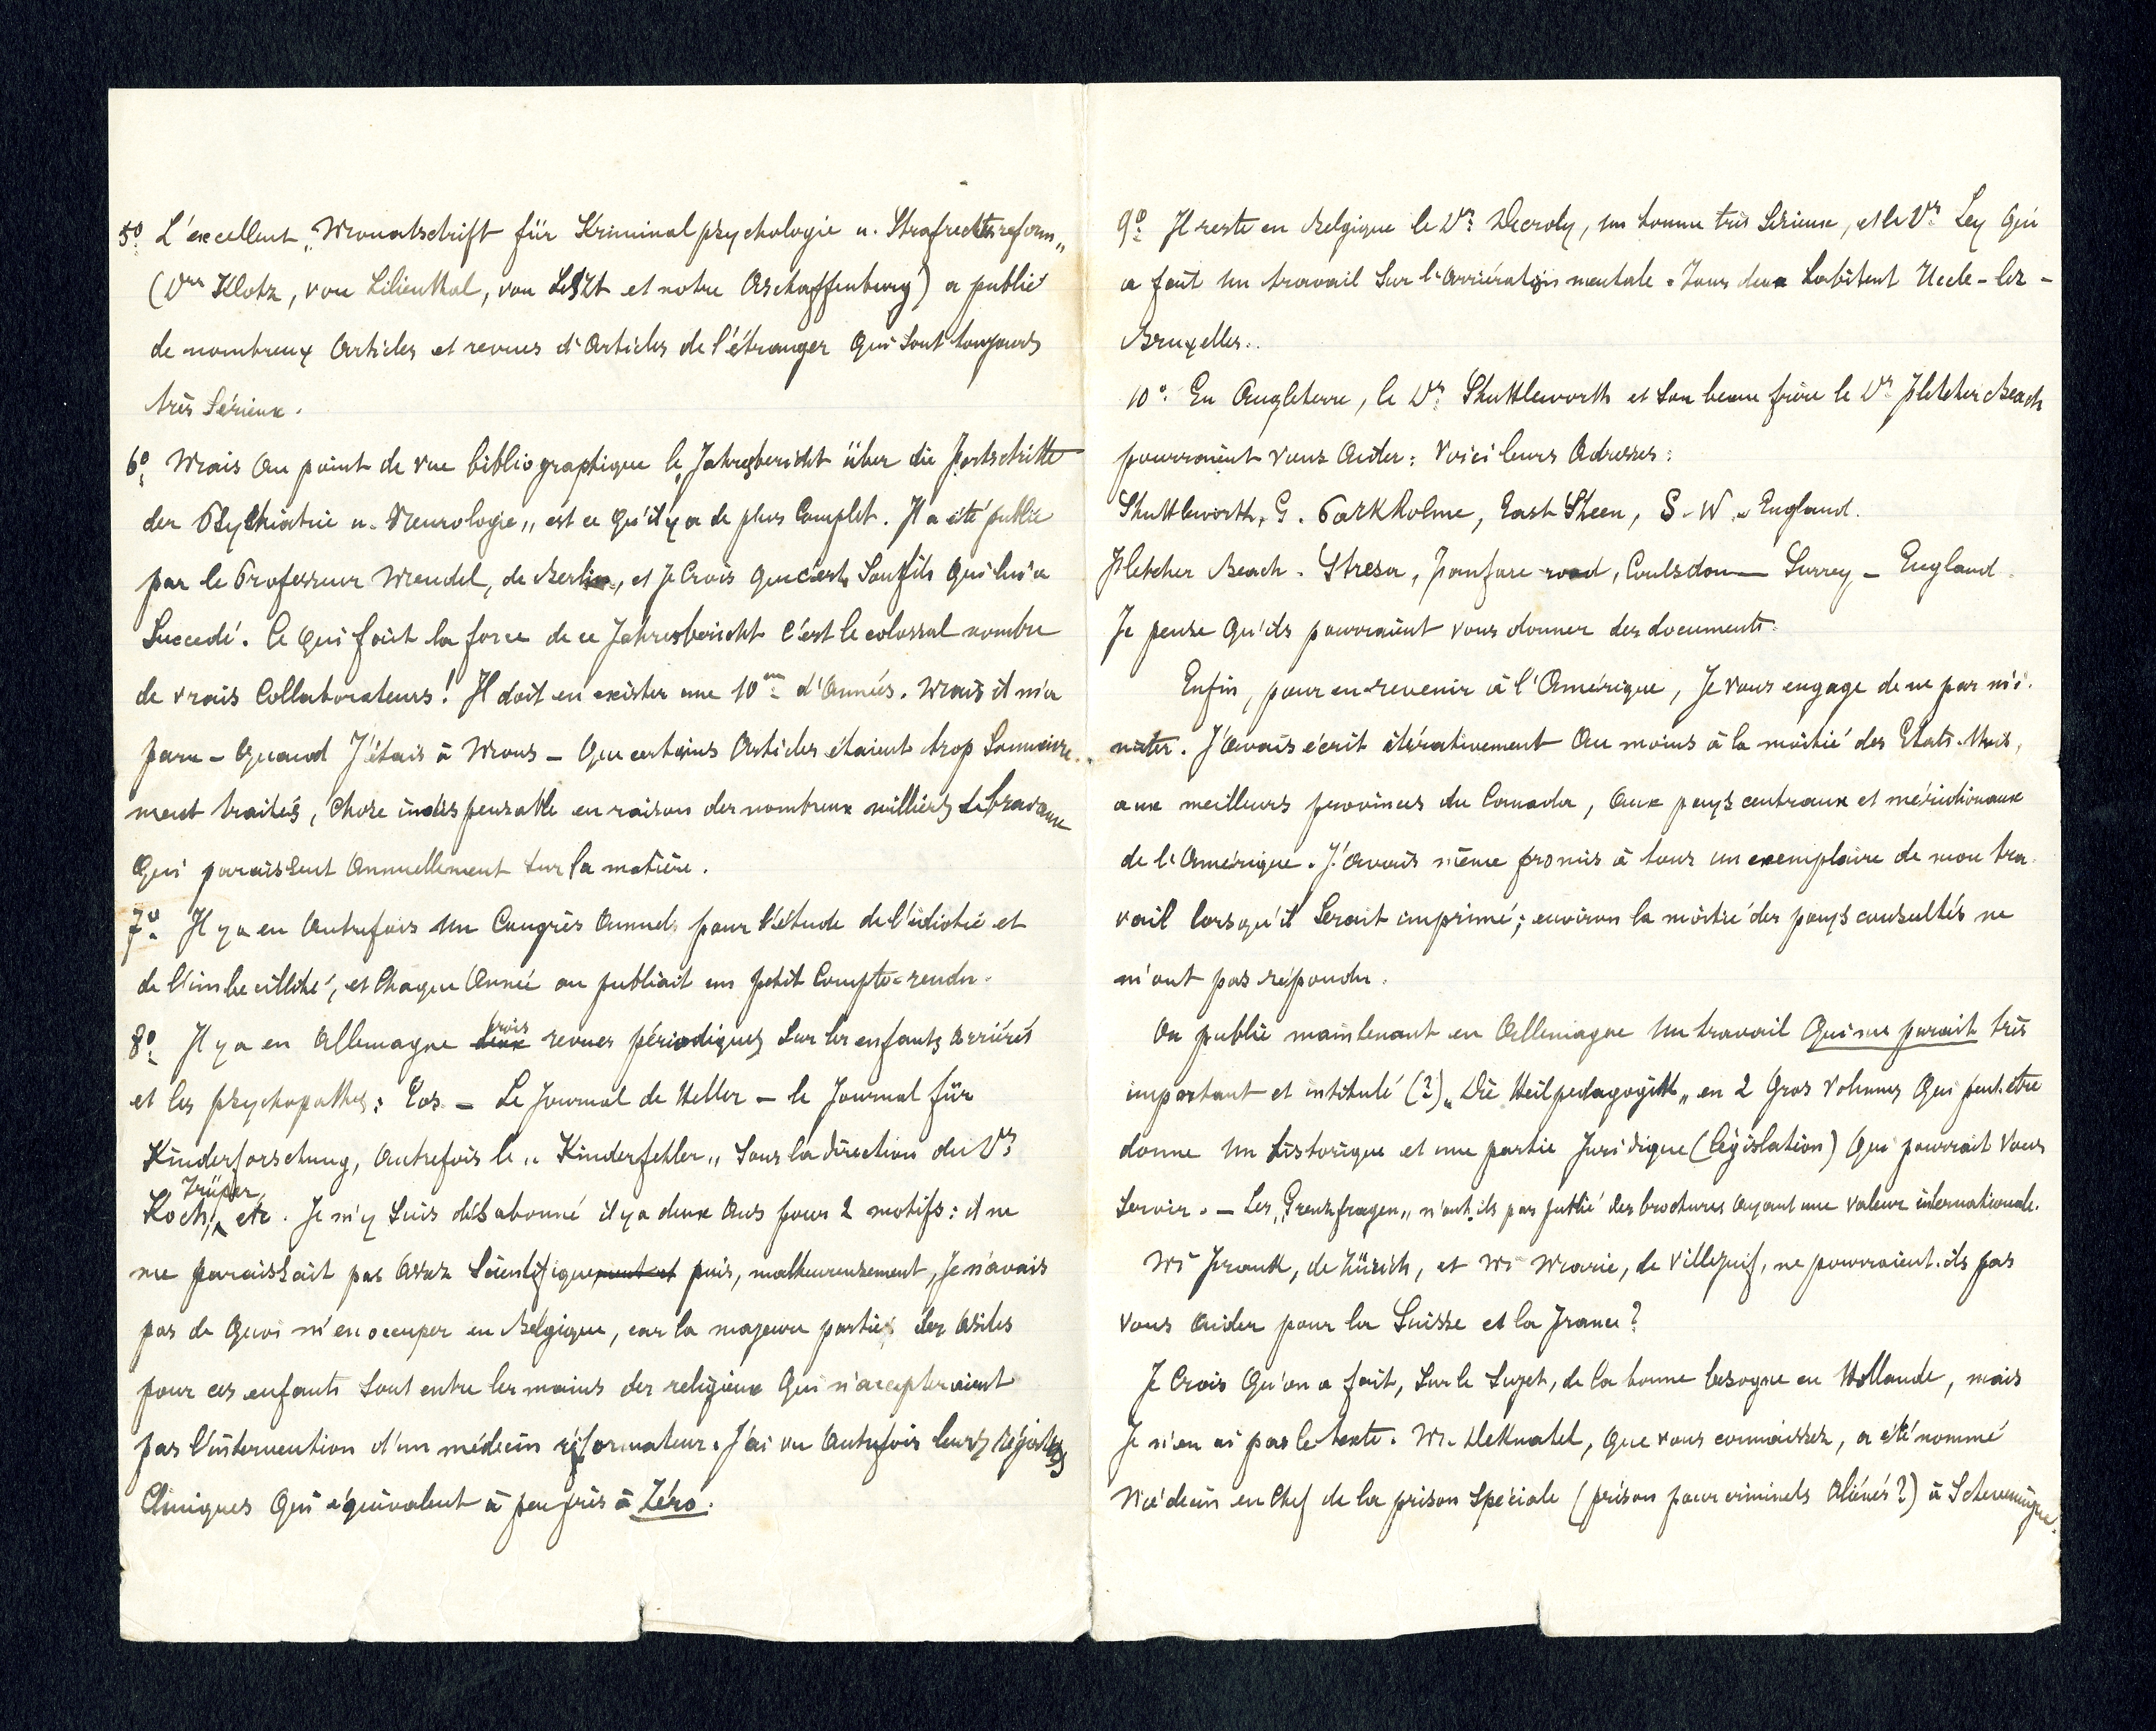 5º L'excellent „Monatschrift für Kriminalpsychologie u. Strafrechtsreform„
(Drs Klotz, von Lilienthal, von Liszt et notre Aschaffenburg) a publié
de nombreux articles et revues d'articles de l'étranger qui sont toujours
très sérieux.
6º Mais au point de vue bibliographique le „Jahresbericht über die Fortschritte
der Psychiatrie u. Neurologie„ est ce qu'il y a de plus complet. Il a été publié
par le Professeur Mendel, de Berlin, et je crois que c'est son fils qui lui a
succedé. Ce qui fait la force de ce Jahresbericht c'est le colossal nombre
de vrais collaborateurs! Il doit en exister une 10ne d'années. Mais il m'a
paru - quand j'étais à Mons - que certains articles étaient trop sommaire-
ment traités, chose indispensable en raison des nombreux milliers de travaux
qui paraissent annuellement sur la matière.
7º Il y a eu autrefois un Congrès annuel pour l'étude de l'idiotie et
de l'imbecillité, et chaque année on publiait un petit compte-rendu.
8º Il y a en Allemagne deux trois revues périodiques sur les enfants arriérés
et les psychopathes: Eos - Le Journal de Heller - le Journal für
Kinderforschung, autrefois le „Kinderfehler„ sous la direction du Drs
Koch, Trüper, etc. Je m'y suis désabonné il y a deux ans pour 2 motifs: il ne
me paraissait pas assez scientifiquement et puis, malheureusement, je n'avais
pas de quoi m'en occuper en Belgique, car la majeure partie des asiles
pour ces enfants sont entre les mains des religieux qui n'accepteraient
pas l'intervention d'un médecin réformateur. J'ai vu autrefois leurs registres
cliniques qui équivalent à peu près à Zéro.
9º Il reste en Belgique le Dr Decroly, un homme très sérieux, et le Dr Ley qui
a fait un travail sur l'arriération mentale. Tous deux habitent Uccle-lez-
Bruxelles.
10º En Angleterre, le Dr Shuttleworth et son beau frère le Dr Fletcher Beach
pourraient vous aider: Voici leurs adresses:
Shuttleworth, G. Parkholme, East Sheen, S-W. England.
Fletcher Beach. Stresa, road, Coulsdon - Surrey - England.
Je pense qu'ils pourraient vous donner des documents.
Enfin, pour en revenir à l'Amérique, je vous engage de ne pas m'i-
miter. J'avais écrit itérativement au moins à la moitié des Etats-Unis,
aux meilleurs provinces du Canada, aux pays centraux et méridionaux
de l'Amérique. J'avais même promis à tous un exemplaire de mon tra-
vail lorsqu'il serait imprimé; environ la moitié des pays consultés ne
m'ont pas répondu.
On publie maintenant en Allemagne un travail qui me parait très
important et intitulé (?) „Die Heilpedagogik„ en 2 gros volumes qui peut.etre
donne un historique et une partie juridique (législation) qui pourrait vous
servir. - Les „Grenzfragen„ n'ont.ils pas publié des brochures ayant une valeur internationale.
Mr Frank, de Zürich, et Mr Marie, de Villejuif, ne pourraient.ils pas
vous aider pour la Suisse et la France?
Je crois qu'on a fait, sur le sujet, de la bonne besogne en Hollande, mais
je n'en ai pas le texte. Mr. Deknatel, que vous connaissez, a été nommé
Médecin en chef de la prison spéciale (prison pour criminels aliénés?) à Scheveningue.